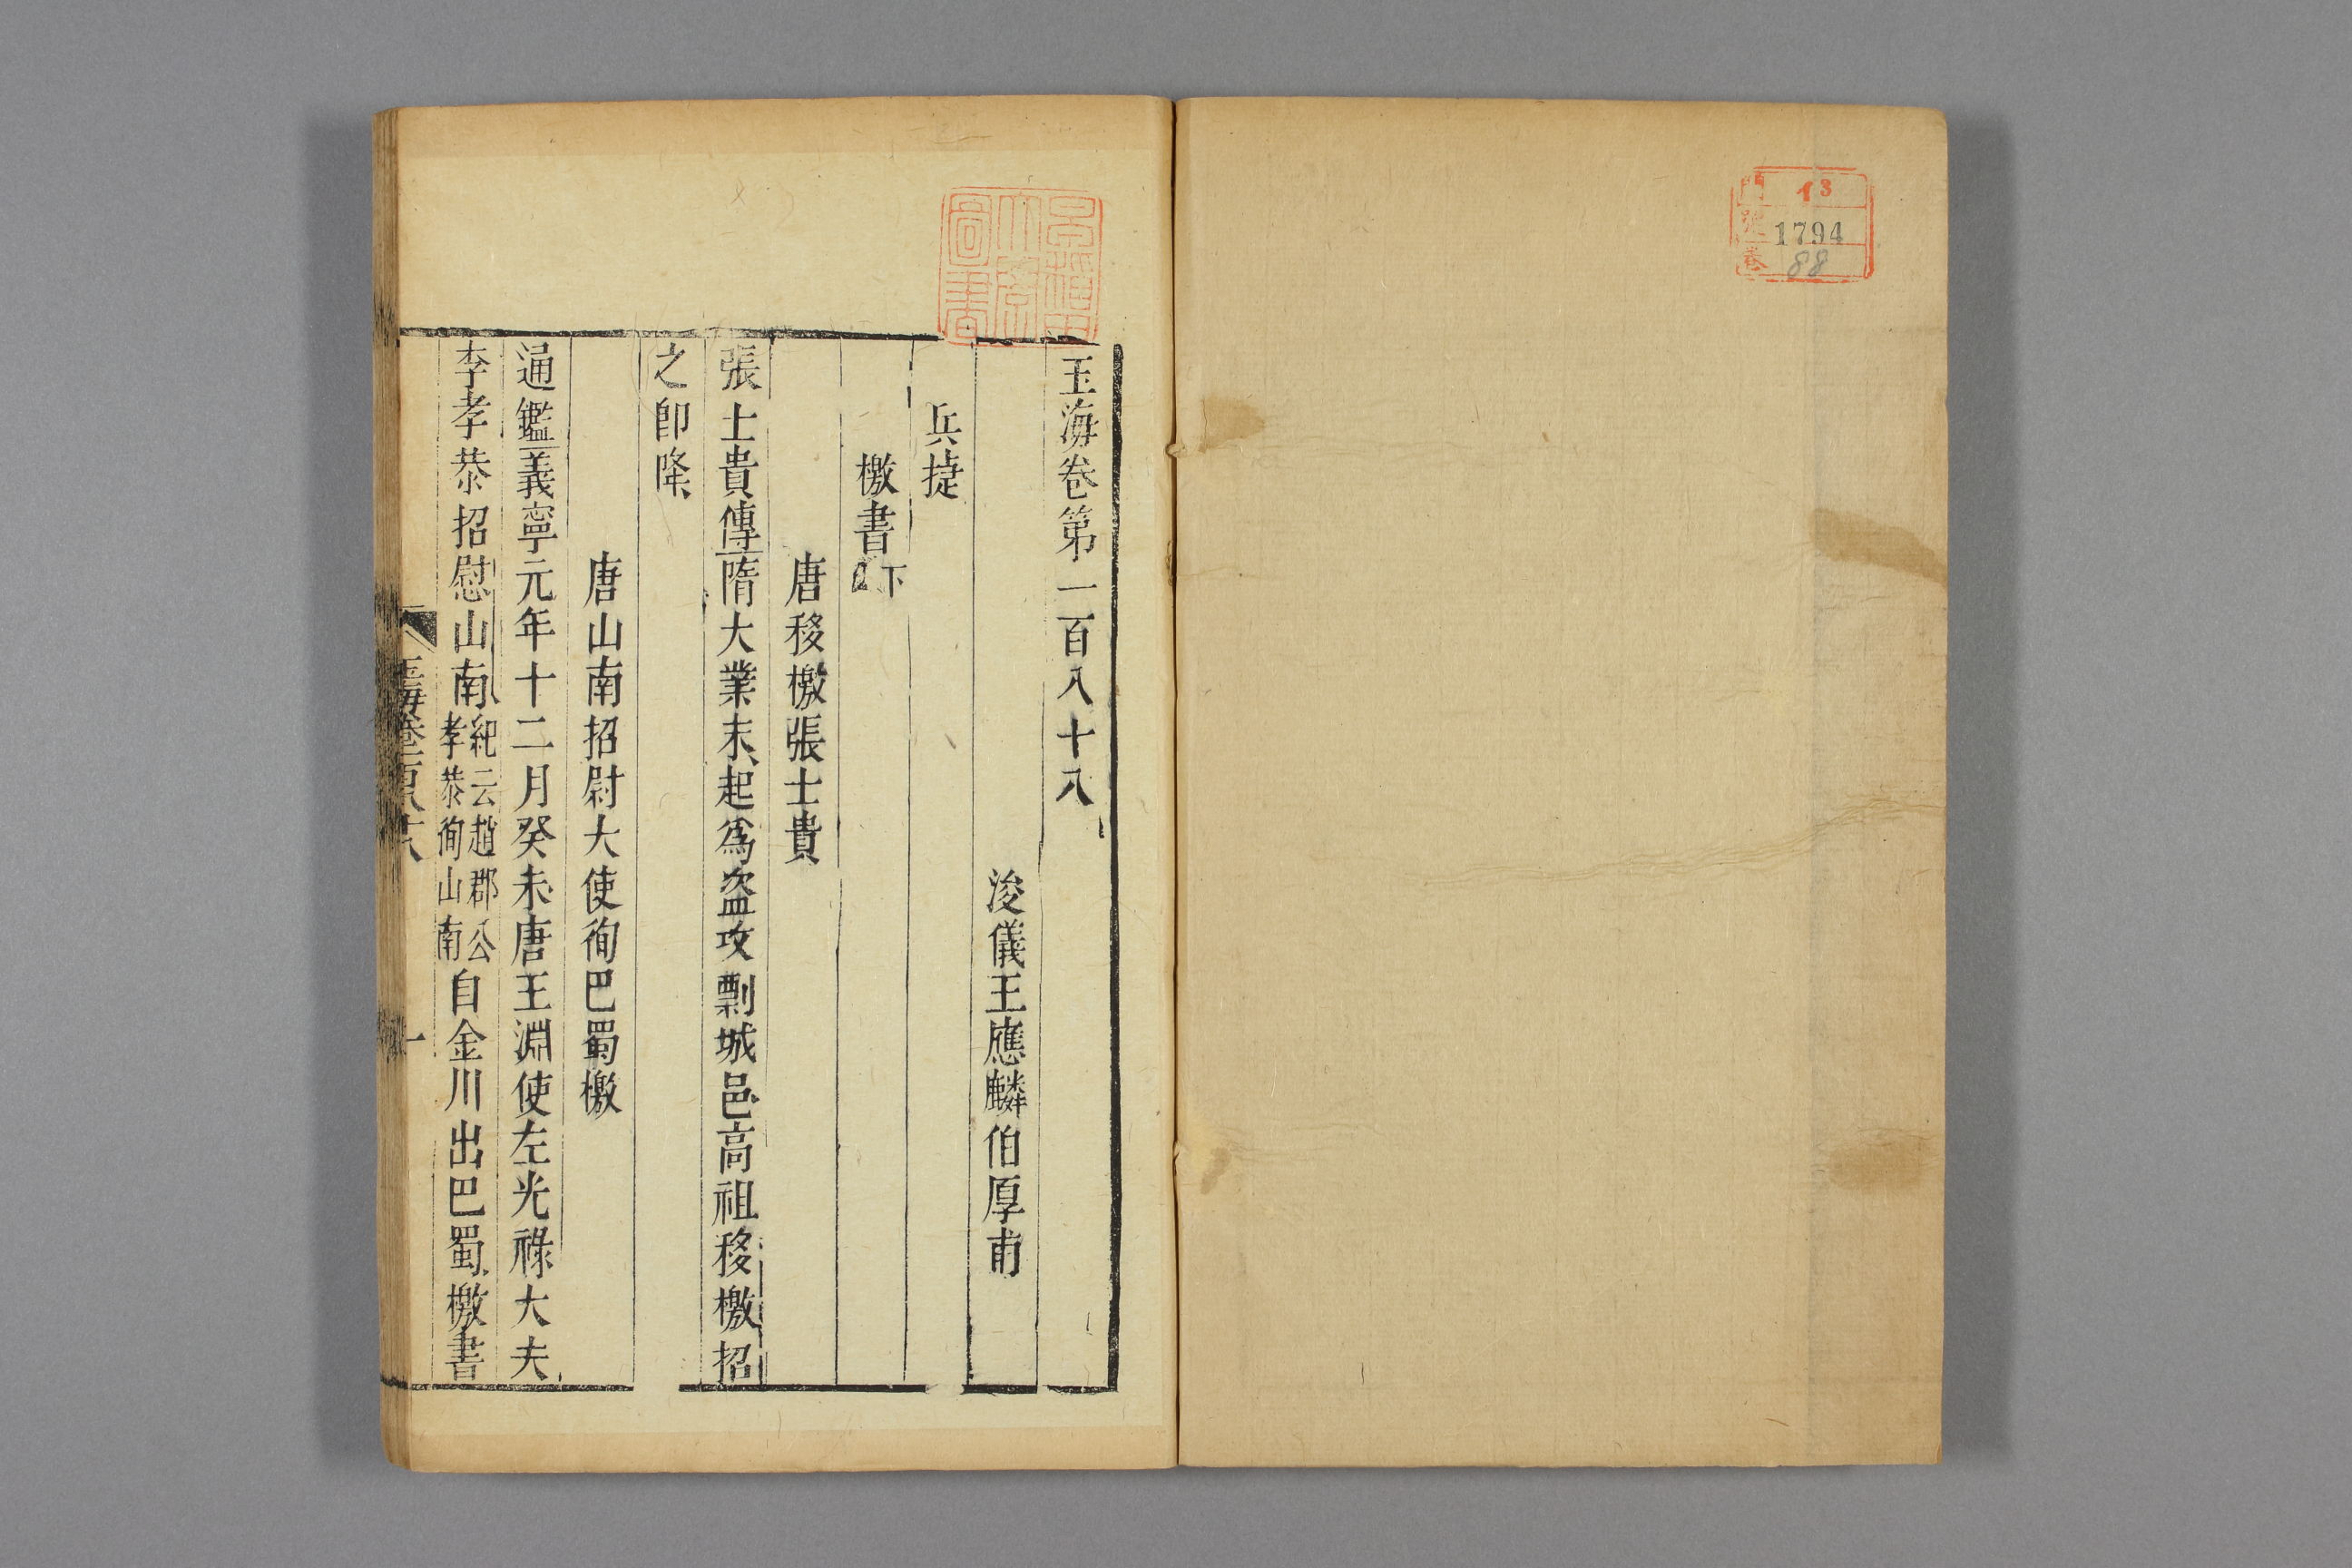 門 13
號 1794
卷 88
玉海卷第一百八十八
浚儀王應麟伯厚甫
兵捷
檄書下
唐移檄張士貴
張士貴傳隋大業末起爲盗攻剽城邑高祖移檄招
之即降
唐山南招尉大使徇巴蜀檄
通鑑義寧元年十二月癸未唐王淵使左光祿大夫
李孝恭招慰山南紀云趙郡公孝恭徇山南自金川出巴蜀檄書
玉海卷一百八十八
一